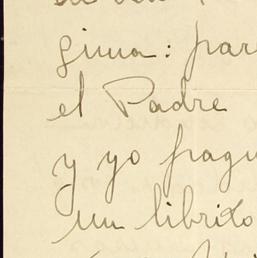 gina: par
el Padre
y yo pagu
un librito